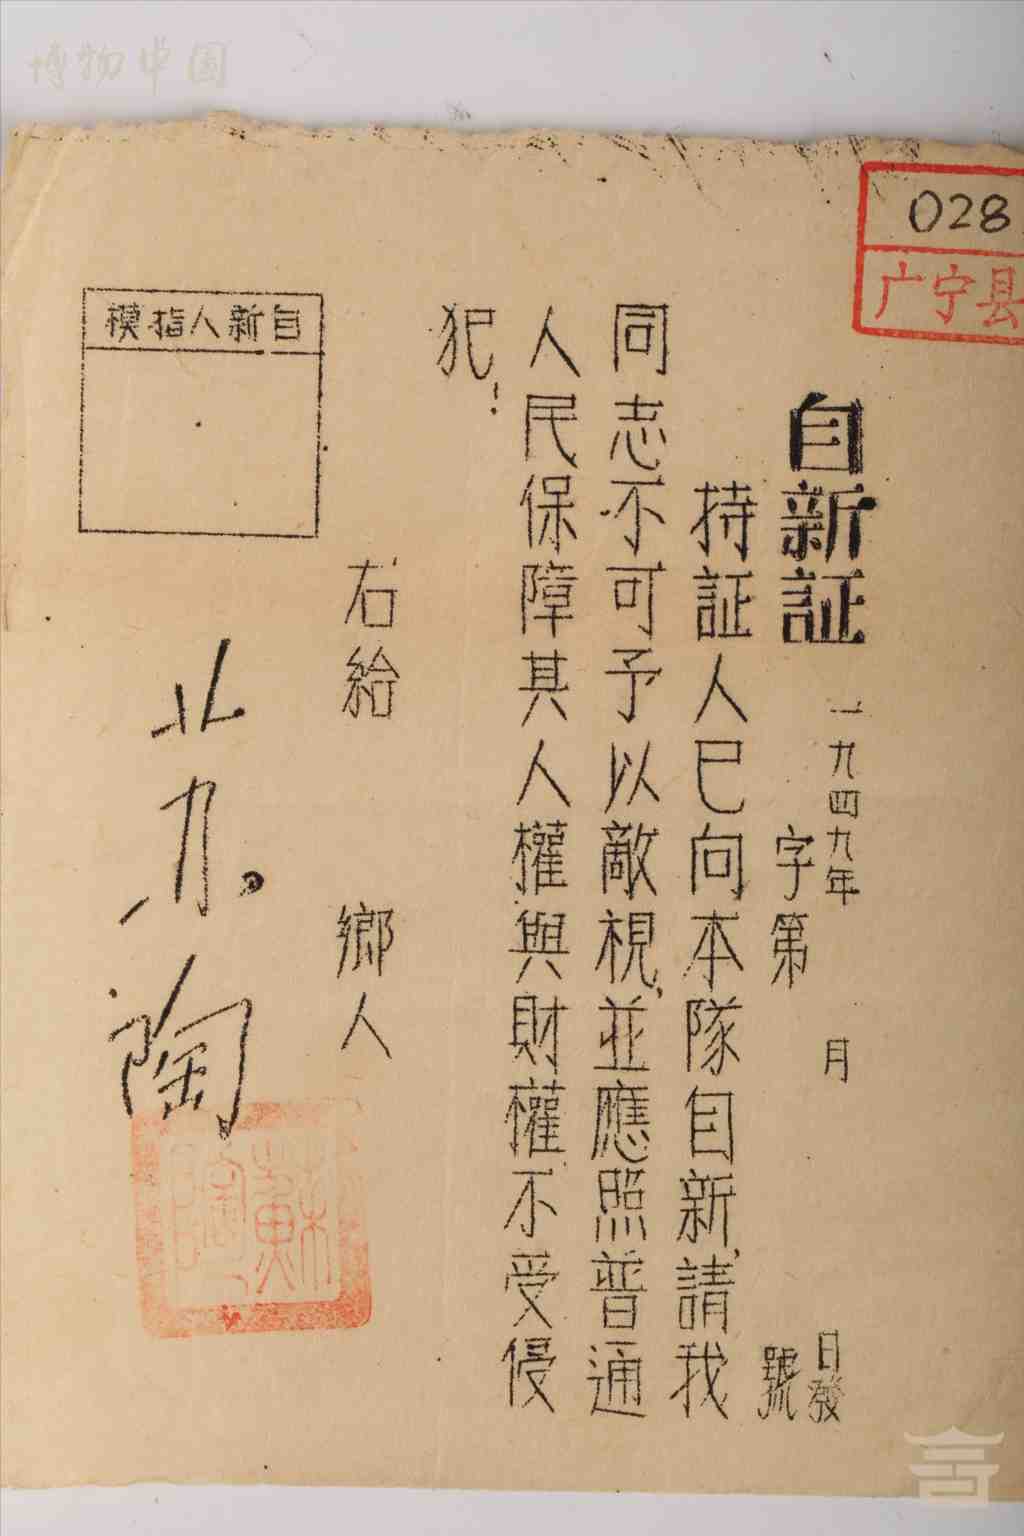 博物中国
028
广宁县
自新証
一九四九年 月 日發
字第 號
持証人已向本隊自新,請我
同志不可予以敵視,並應照普通
人民保障其人權與財權不受侵
犯!
右給 鄉人
自新人指模
苏陶
蘇陶